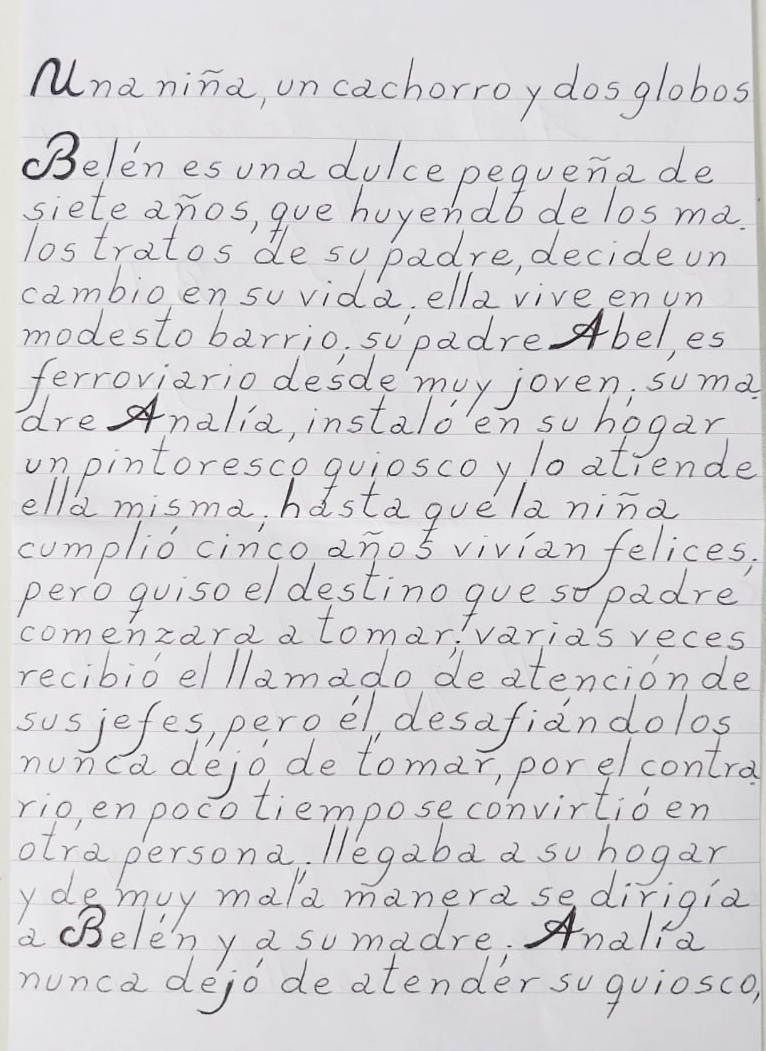 Una niña, un cachorro y dos globos
Belén es una dulce pequeña de
siete años, que huyendo de los ma.
los tratos de su padre, decide un
cambio en su vida; ella vive en un
modesto barrio; su padre Abel, es
ferroviario desde muy joven; su ma.
dre Analía, instaló en su hogar
un pintoresco quiosco y lo atiende
ella misma; hasta que la niña
cumplió cinco años vivían felices;
pero quiso el destino que su padre
comenzara a tomar; varias veces
recibió el llamado de atención de
sus jefes, pero él, desafiándolos
nunca dejó de tomar, por el contra.
rio, en poco tiempo se convirtió en
otra persona; llegaba a su hogar
y de muy mala manera se dirigía
a Belén y a su madre; Analía
nunca dejó de atender su quiosco,